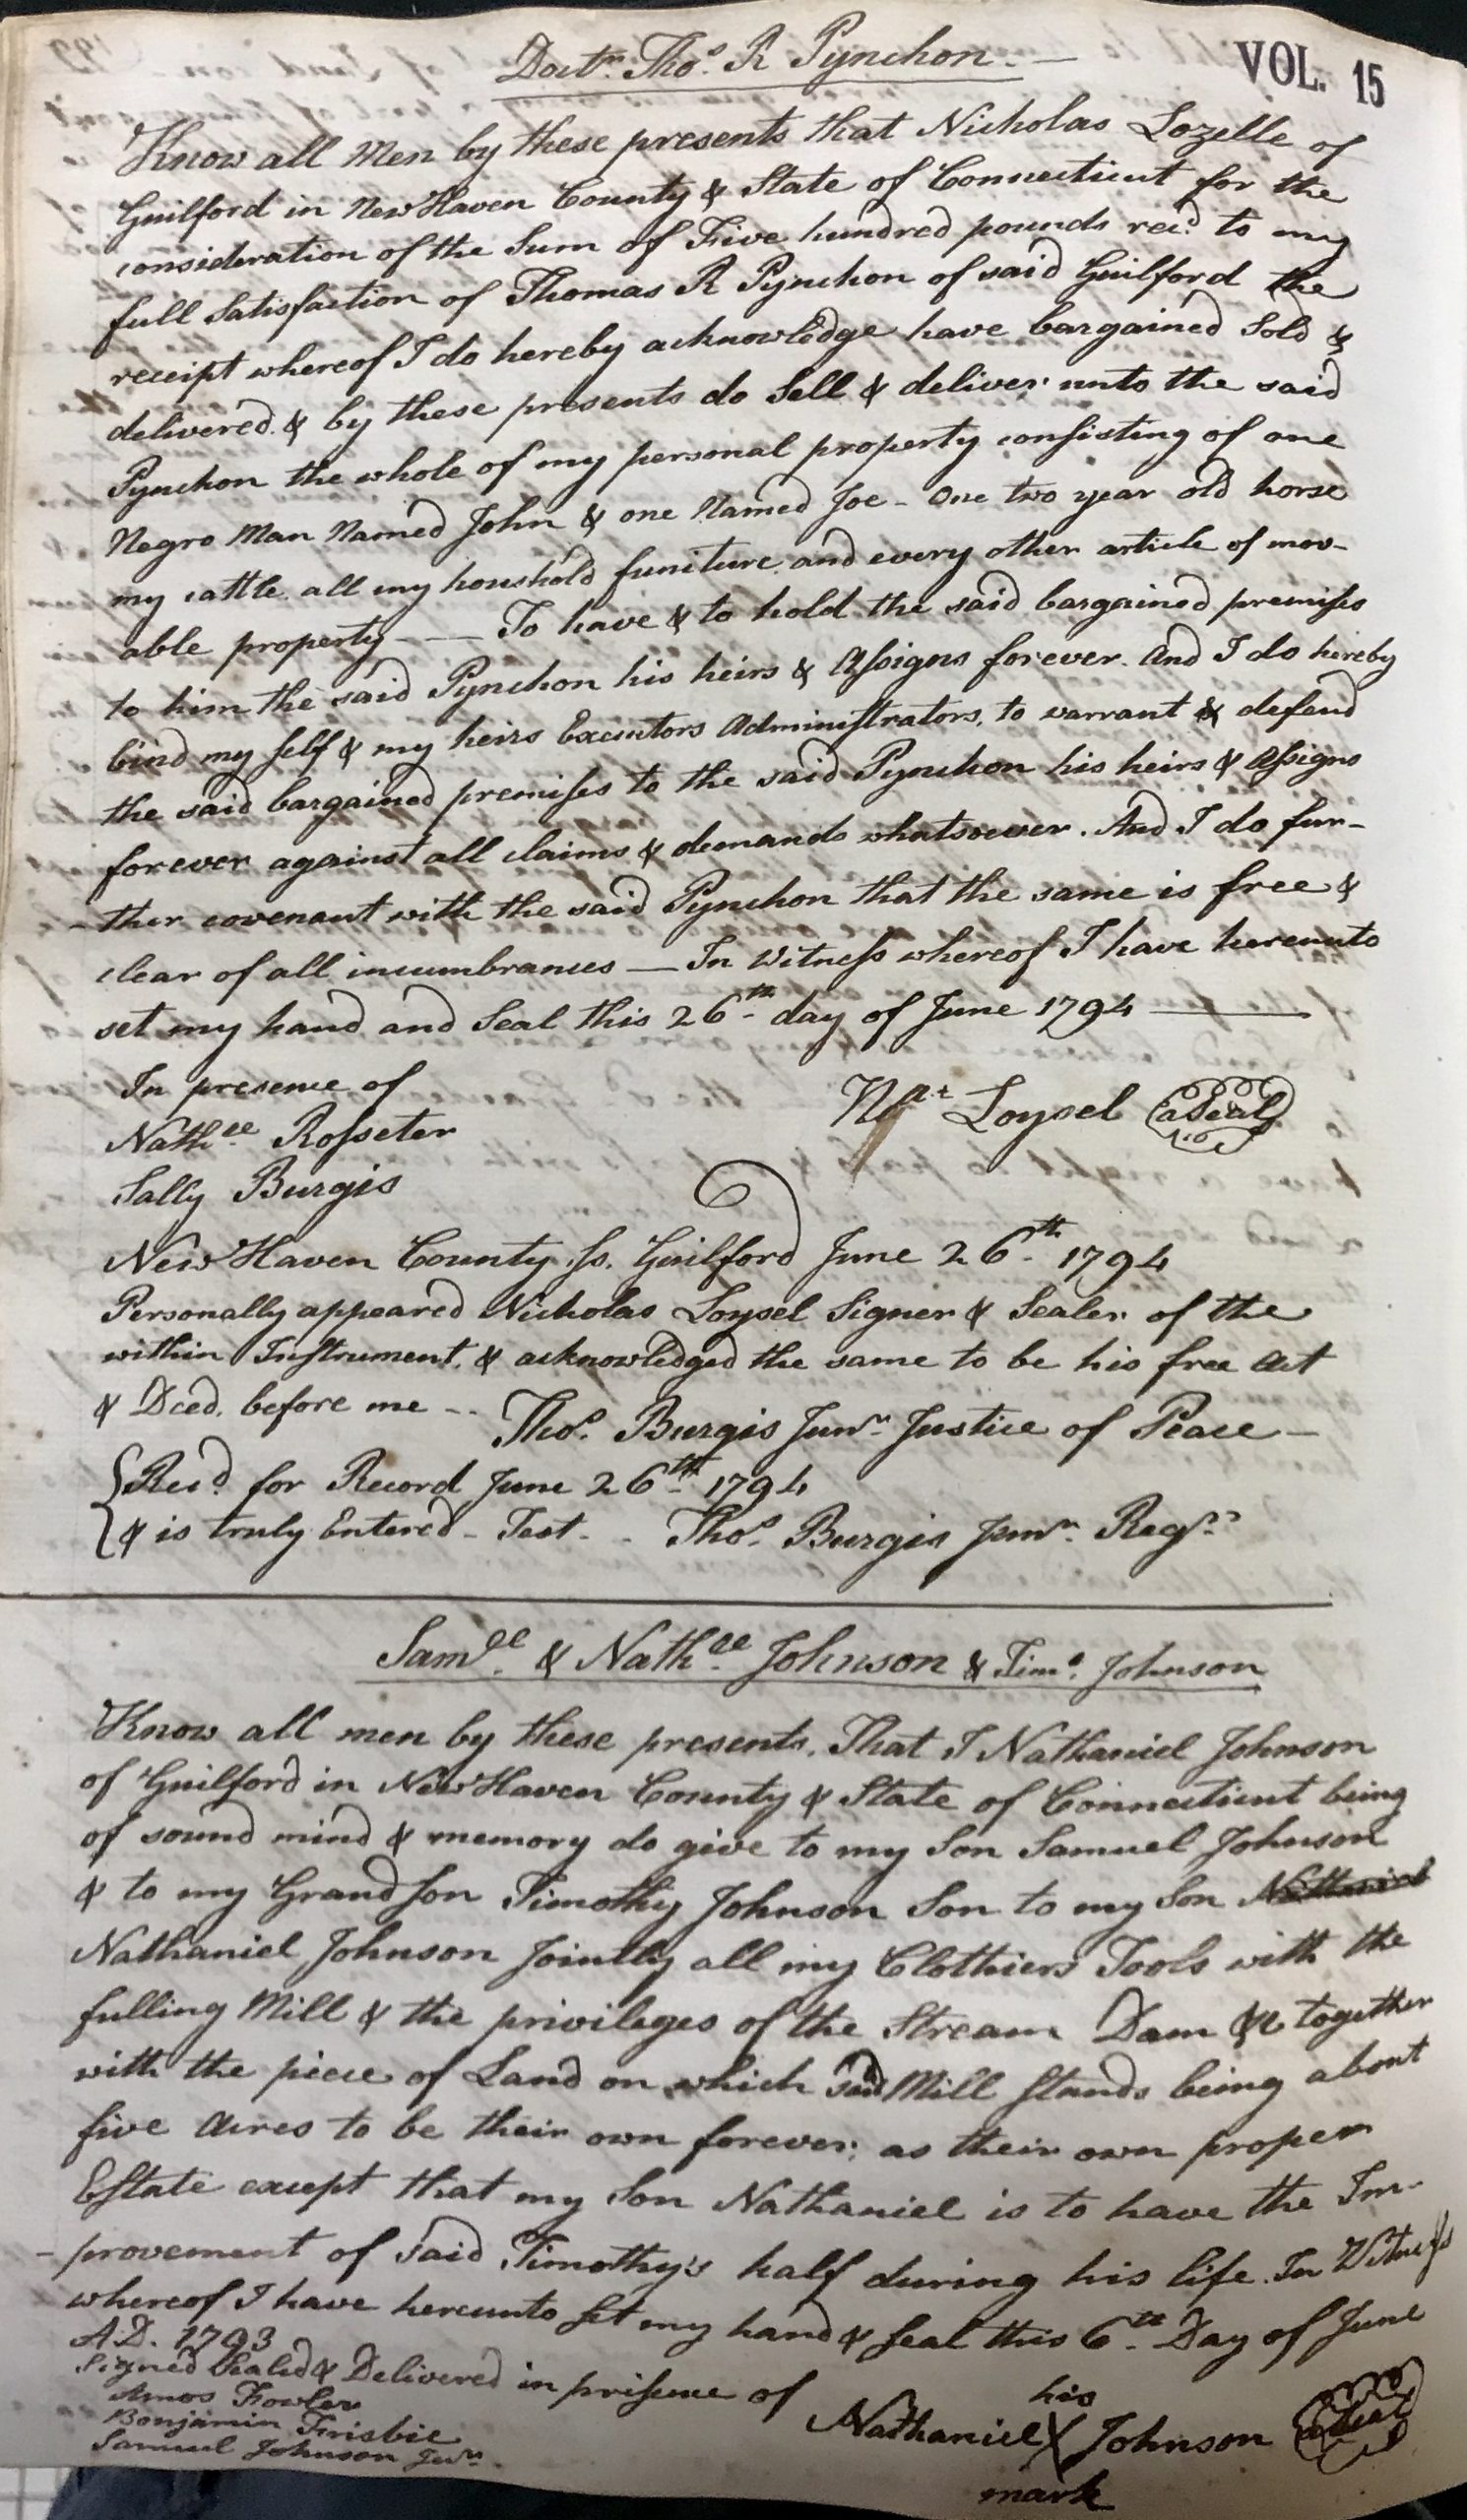 Doctr. Thos. R Pynchon.
VOL. 15
Know all Men by these presents that Nicholas Lozelle of
Guilford in New Haven County & State of Connecticut for the
consideration of the Sum of Five hundred pounds recd. to my
full Satisfaction of Thomas R Pynchon of said Guilford the
receipt whereof I do hereby acknowledge have bargained Sold &
delivered. & by these presents do Sell & deliver unto the said
Pynchon the whole of my personal property consisting of one
Negro Man Named John & one Named Joe - One two year old horse
my cattle all my houshold funiture and every other article of mov-
able property - — To have & to hold the said bargained premises
to him the said Pynchon his heirs & Assigns forever. And I do hereby
bind my self & my heirs Executors Administrators, to warrant & defend
the said bargained premises to the said Pynchon his heirs & Assigns
forever against all claims & demands whatsoever. And I do fur-
-ther covenant with the said Pynchon that the same is free &
clear of all incumbrances — In Witness whereof I have hereunto
set my hand and Seal this 26th. day of June 1794 —
In presence of
Nas. Loysel (a Seal)
Nathll. Rosseter
Sally Burgis
New Haven County Ss. Guilford June 26th. 1794
Personally appeared Nicholas Loysel Signer & Sealer of the
within Instrument, & acknowledged the same to be his free Act
& Deed. before me - -
Thos. Burgis Junr. Justice of Peace —
{Recd. for Record June 26th. 1794
{& is truly Entered - Test. - Thos. Burgis Junr. Regsr.
Samll. & Nathll. Johnson & Timo. Johnson
Know all men by these presents. That I Nathaniel Johnson
of Guilford in New Haven County & State of Connecticut being
of sound mind & memory do give to my Son Samuel Johnson
& to my Grand Son Timothy Johnson Son to my Son Nathaniel
Nathaniel Johnson Jointly all my Clothiers Tools with the
fulling Mill & the privileges of the Stream Dam &c together
with the piece of Land on which said Mill Stands being about
five Acres to be their own forever; as their own proper
Estate except that my Son Nathaniel is to have the Im-
-provement of Said Timothy's half during his life. In Witness
whereof I have hereunto Set my hand & Seal this 6th. Day of June
A.D. 1793
Signed Sealed & Delivered in presence of
Amos Fowler
Benjamin Frisbie
Samuel Johnson Junr.
his
Nathaniel X Johnson (a Seal)
mark